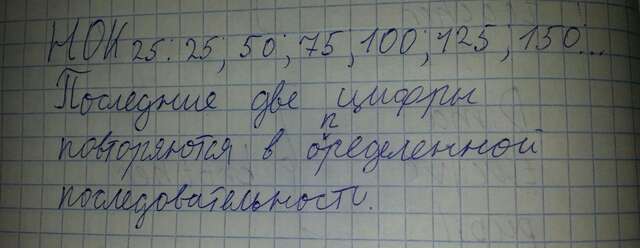 НОК 25: 25; 50; 75; 100; 125; 150...
Последние две цифры
повторяются в определенной
последовательности.